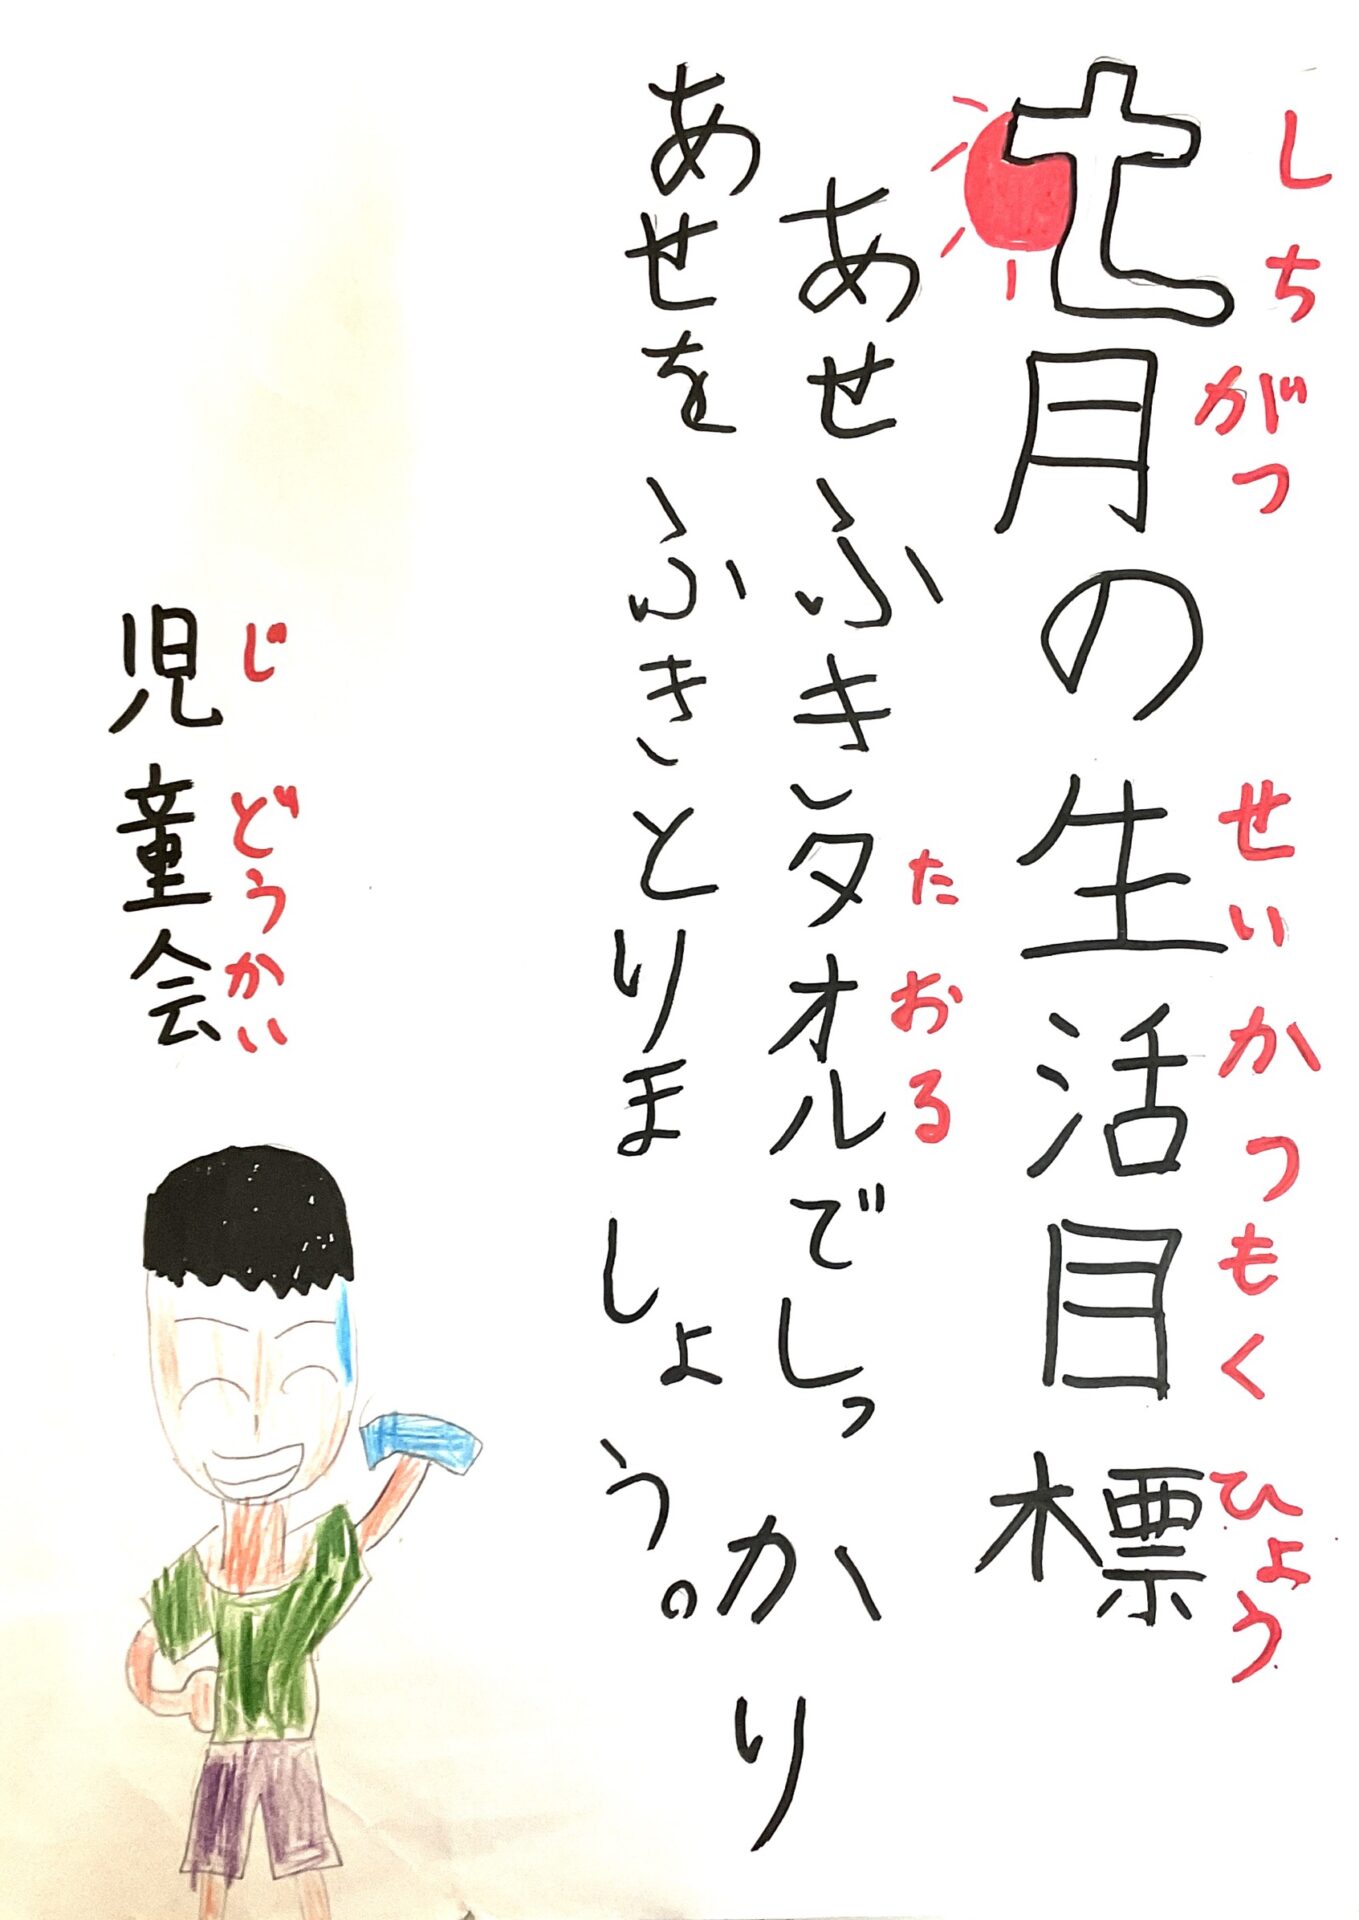 七月の生活目標
しちがつ せいかつもくひょう
あせふきタオルでしっかり
たおる
あせをふきとりましょう。
児童会
じどうかい